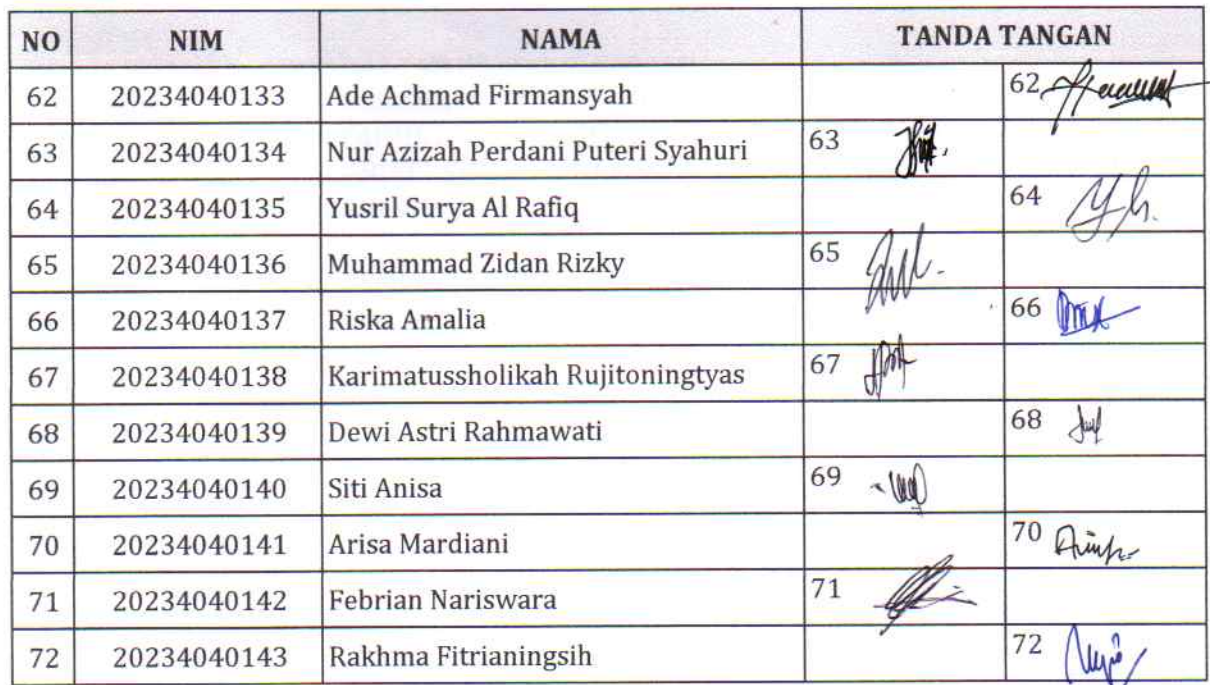 NO NIM NAMA TANDA TANGAN
62 20234040133 Ade Achmad Firmansyah 62
63 20234040134 Nur Azizah Perdani Puteri Syahuri 63
64 20234040135 Yusril Surya Al Rafiq 64
65 20234040136 Muhammad Zidan Rizky 65
66 20234040137 Riska Amalia 66
67 20234040138 Karimatussholikah Rujitoningtyas 67
68 20234040139 Dewi Astri Rahmawati 68
69 20234040140 Siti Anisa 69
70 20234040141 Arisa Mardiani 70
71 20234040142 Febrian Nariswara 71
72 20234040143 Rakhma Fitrianingsih 72